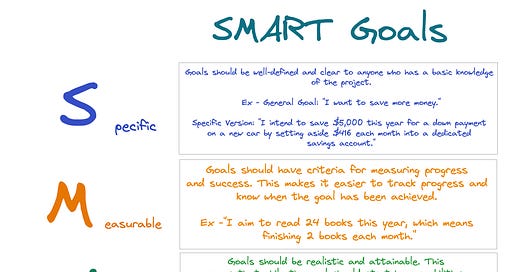 SMART Goals
S pecific
Goals should be well-defined and clear to anyone who has a basic knowledge
of the project.
Ex - General Goal: "I want to save more money."
Specific Version: "I intend to save $5,000 this year for a down payment
on a new car by setting aside $416 each month into a dedicated
savings account."
M easurable
Goals should have criteria for measuring progress
and success. This makes it easier to track progress and
know when the goal has been achieved.
Ex -"I aim to read 24 books this year, which means
finishing 2 books each month."
Goals should be realistic and attainable. This